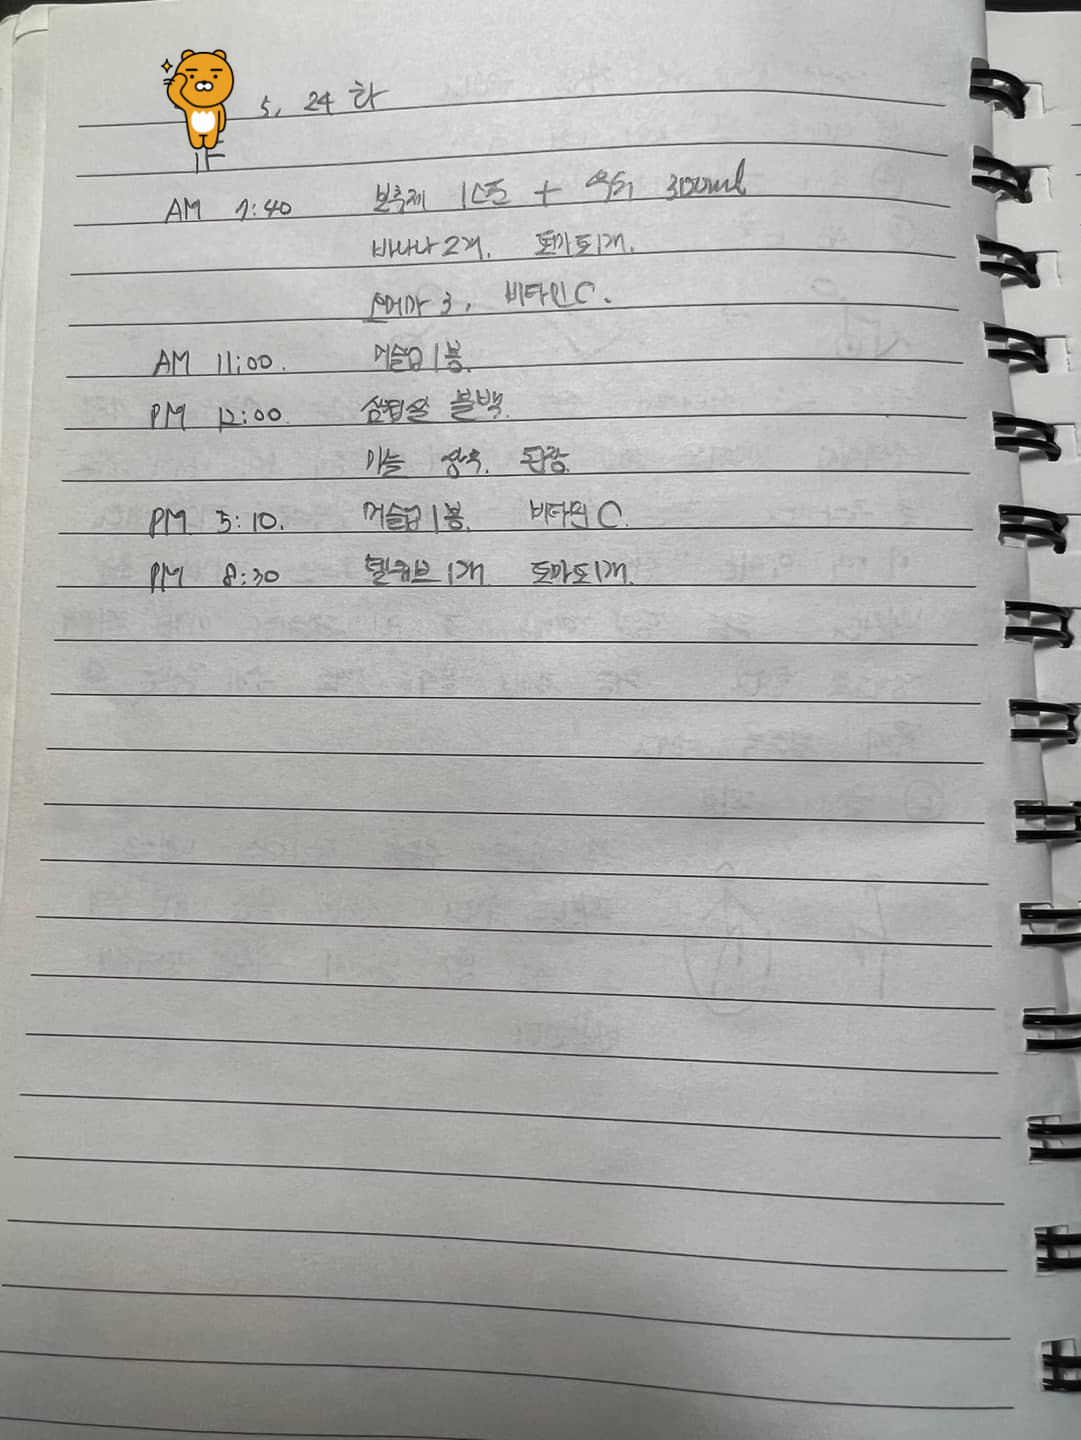 5, 24 화
AM 7:40 보충제 1스푼 + 우유 300ml
바나나 2개. 토마토1개.
오메가 3, 비타민C.
AM 11:00. 머슬업1봉.
PM 12:00. 삼겹살 불백.
마늘 상추. 된장.
PM 5:10. 머슬업1봉. 비타민 C.
PM 8:30 1개 토마토1개.